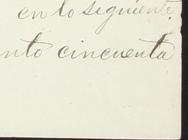 en lo siguiente.
nto cincuenta